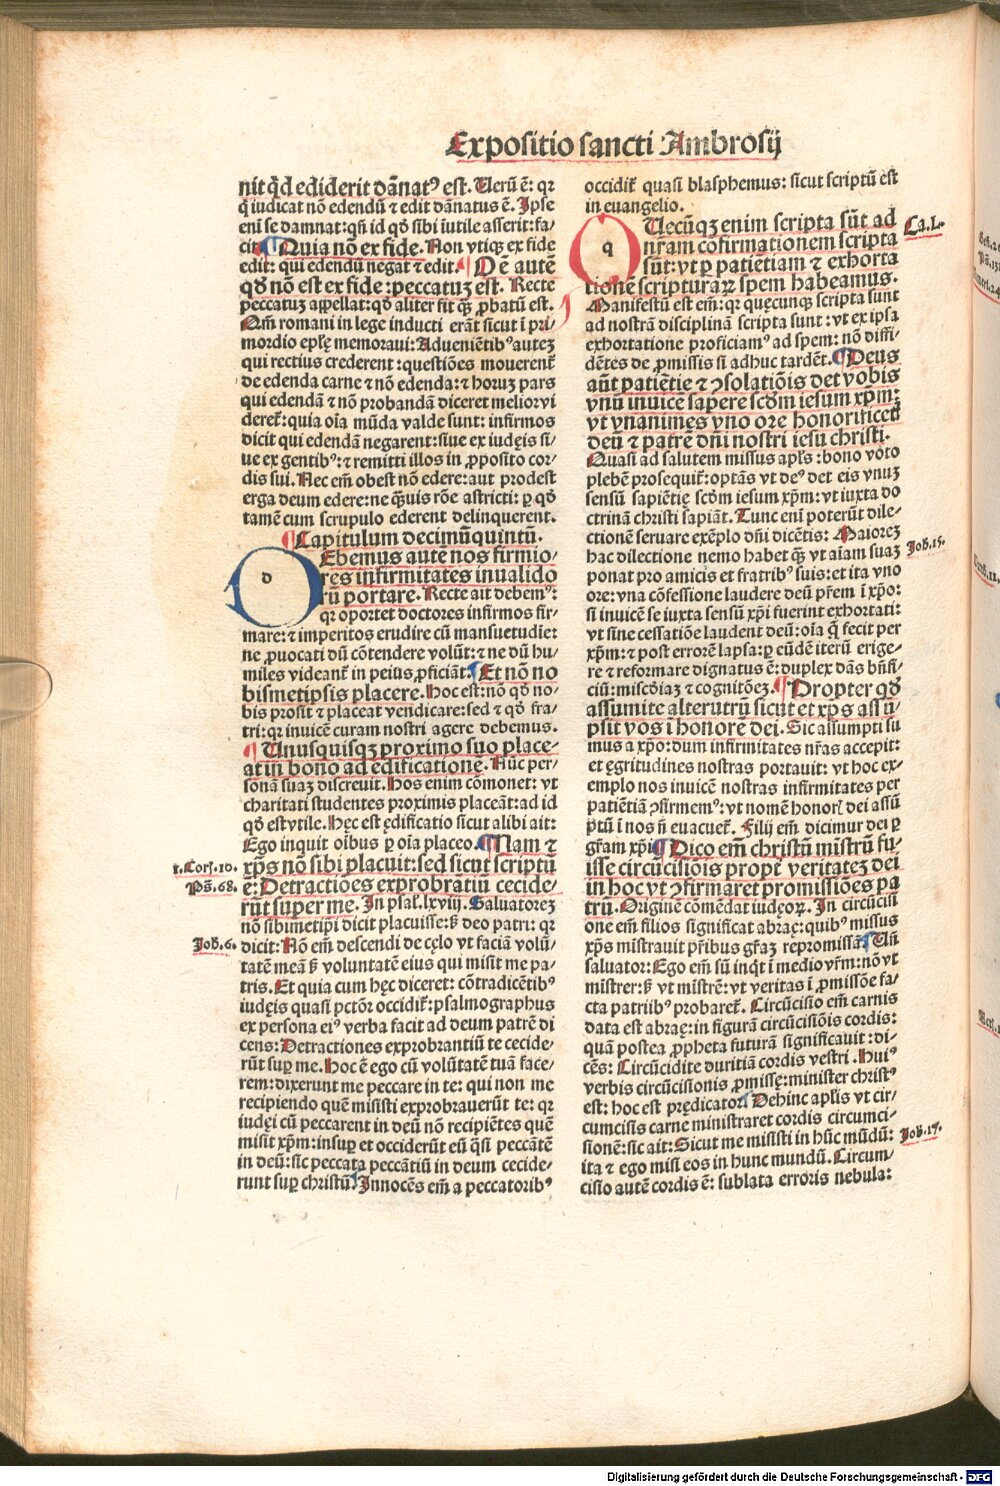 Expositio sancti Ambrosij
nit qd̛ ediderit dānatꝰ est. Uerū ē: qꝛ
q̄ iudicat nō edendū ⁊ edit dānatus ē. Ipse
eni se damnat: qn̄ id qd̛ sibi iutile asserit: fa⸗
cit. Quia nō ex fide. Non vtiqꝫ ex fide
edit: qui edendū negat ⁊ edit. Oē autē
qd̛ nō est ex fide: peccatuꝫ est. Recte
peccatuꝫ appellat: qd̛ aliter fit q̄ꝫ ꝓbatū est.
Qm̄ romani in lege inducti erāt sicut ī pri⸗
mordio ep̄lę memoraui: Adueniētibꝰ auteꝫ
qui rectius crederent: questiōes mouerent̄
de edenda carne ⁊ nō edenda: ⁊ horuꝫ pars
qui edendā ⁊ nō probandā diceret melior vi
deret̄: quia oīa mūda valde sunt: infirmos
dicit qui edendā negarent: siue ex iudęis si⸗
ue ex gentibꝰ: ⁊ remitti illos in ꝓposito cor⸗
dis sui. Nec em̄ obest nō edere: aut prodest
erga deum edere: ne q̄uis rōe astricti: ꝑ qd̛
tamē cum scrupulo ederent delinquerent.
Capitulum decimūquintū.
d
Ebemus autē nos firmio⸗
res infirmitates inualido
rū portare. Recte ait debemꝰ:
qꝛ oportet doctores infirmos fir⸗
mare: ⁊ imperitos erudire cū mansuetudīe:
ne ꝓuocati dū cōtendere volūt: ⁊ ne dū hu⸗
miles videant̄ in peius ꝓficiāt. Et nō no
bismetipsis placere. Hoc est: nō qd̛ no⸗
bis prosit ⁊ placeat vendicare: sed ⁊ qd̛ fra⸗
tri: qꝛ inuicē curam nostri agere debemus.
Unusquisqꝫ proximo suo place⸗
at in bono ad edificationē. Nūc per⸗
sonā suaꝫ discreuit. Hos enim cōmonet: vt
charitati studentes proximis placeāt: ad id
qd̛ est vtile. Hęc est ędificatio sicut alibi ait:
Ego inquit oībus ꝑ oīa placeo. Nam ⁊
xp̄s nō sibi placuit: sed sicut scriptū
ē: Detractiōes exprobratiū cecide⸗
rūt super me. In psal. lxviij. Saluatoreꝫ
nō sibimetip̄i dicit placuisse: sꝫ deo patri: qꝛ
dicit: Nō em̄ descendi de cęlo vt faciā volū⸗
tatē meā sꝫ voluntatē eius qui misit me pa⸗
tris. Et quia cum hęc diceret: cōtradicētibꝰ
iudęis quasi pctōr occidit̄: psalmographus
ex persona eiꝰ verba facit ad deum patrē di
cens: Detractiones exprobrantiū te cecide⸗
rūt suꝑ me. Hoc ē ego cū volūtatē tuā face⸗
rem: dixerunt me peccare in te: qui non me
recipiendo quē misisti exprobrauerūt te: qꝛ
iudęi cū peccarent in deū nō recipiētes quē
misit xp̄m: insuꝑ et occiderūt eū q̄si peccātē
in deū: sic peccata peccātiū in deum cecide⸗
runt suꝑ christū. Innocēs em̄ a peccatoribꝰ
1. Corī. 10.
Pś. 68.
Joh̄. 6.
occidit̄ quasi blasphemus: sicut scriptū est
in euangelio.
q
Uecūqꝫ enim scripta sūt ad
nr̄am cofirmationem scripta
sūt: vt ꝑ patiētiam ⁊ exhorta
tionē scripturaꝝ spem habeamus.
Manifestū est em̄: qꝛ quęcunqꝫ scripta sunt
ad nostrā disciplinā scripta sunt: vt ex ipsa
exhortatione proficiamꝰ ad spem: nō diffi⸗
dētes de ꝓmissis si adhuc tardēt. Deus
aūt patiētie ⁊ ꝯsolatiōis det vobis
vnū inuicē sapere scd̄m iesum xp̄m:
vt vnanimes vno ore honorificetꝭ
deū ⁊ patrē dn̄i nostri iesu christi.
Quasi ad salutem missus apl̄s: bono voto
plebē prosequit̄: optās vt deꝰ det eis vnuꝫ
sensū sapiētię scd̄m iesum xp̄m: vt iuxta do
ctrinā christi sapiāt. Tunc eni poterūt dile⸗
ctionē seruare exēplo dn̄i dicētis: Maioreꝫ
hac dilectione nemo habet q̄ꝫ vt aīam suaꝫ
ponat pro amicis et fratribꝰ suis: et ita vno
ore: vna cōfessione laudere deū pr̄em ī xp̄o:
si inuicē se iuxta sensū xp̄i fuerint exhortati:
vt sine cessatiōe laudent deū: oīa q̄ fecit per
xp̄m: ⁊ post errorē lapsa: ꝑ eūdē iterū erige⸗
re ⁊ reformare dignatus ē: duplex dās bn̄fi⸗
ciū: misc̄diaꝫ ⁊ cognitōeꝫ. Propter qd̛
assumite alterutrū sicut et xp̄s assū⸗
psit vos ī honorē dei. Sic assumpti su
mus a xp̄o: dum infirmitates nr̄as accepit:
et ęgritudines nostras portauit: vt hoc ex⸗
emplo nos inuicē nostras infirmitates per
patiētiā ꝯfirmemꝰ: vt nomē honorꝭ dei assū
ptū ī nos n̄ euacuet̄. Filij em̄ dicimur dei ꝑ
gr̄am xp̄i. Dico em̄ christū mistrū fu⸗
isse circūcisiōis propt̄ veritateꝫ dei
in hoc vt ꝯfirmaret promissiōes pa
trū. Originē cōmēdat iudęoꝝ. In circūcisi
one em̄ filios significat abraę: quibꝰ missus
xp̄s mistrauit pr̄ibus gr̄aꝫ repromissā. Un̄
saluator: Ego em̄ sū inqͥt ī medio vr̄m: nō vt
mīstrer: sꝫ vt mīstrē: vt veritas ī ꝓmissōe fa⸗
cta patriibꝰ probaret̄. Circūcisio em̄ carnis
data est abraę: in figurā circūcisiōis cordis:
quā postea ꝓpheta futurā significauit: di⸗
cēs: Circūcidite duritiā cordis vestri. Huiꝰ
verbis circūcisionis ꝓmissę: minister christꝰ
est: hoc est prędicator. Dehinc apl̄is vt cir⸗
cumcisis carne ministraret cordis circumci⸗
sionē: sic ait: Sicut me misisti in hūc mūdū:
ita ⁊ ego misi eos in hunc mundū. Circum⸗
cisio autē cordis ē: sublata erroris nebula:
Ca. L.
Joh̄. 15.
Joh̄. 17.
Digitalisierung gefördert durch die Deutsche Forschungsgemeinschaft - DFG